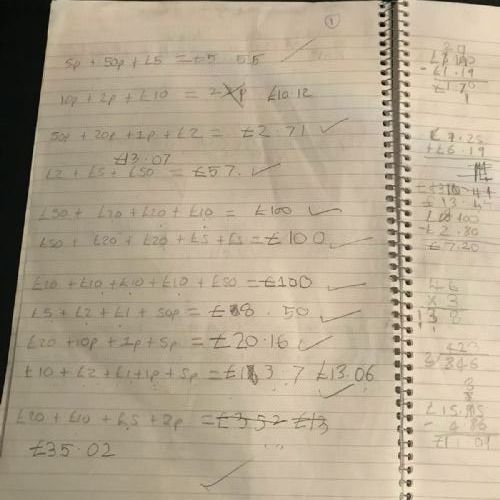 1
5p + 50p + £5 = £5 55
10p + 2p + £10 = £10.12
50p + 20p + 1p + £2 = £2.71
£13.07
£2 + £5 + £50 = £57.
£50 + £20 + £20 + £10 = £100
£50 + £20 + £20 + £5 + £5 = £100
£20 + £10 + £10 + £10 + £50 = £100
£5 + £2 + £1 + 50p = £8.50
£20 + 10p + 1p + 5p = £20.16
£10 + £2 + £1 + 1p + 5p = £13.7 £13.06
£20 + £10 + £5 + 2p = £352 £13
£35.02
- £1.19
+ £6.19
- £2.80
£7.20
46
x 3
138
423
2/846